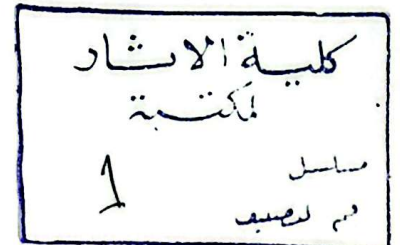 كلية الاثار
مكتبة
مسلسل
1
رقم تصنيف